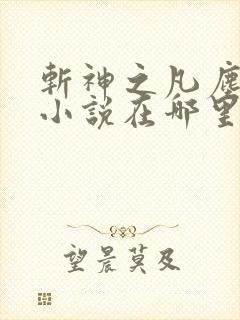 斬神之凡塵
小說在哪里
望晨莫及